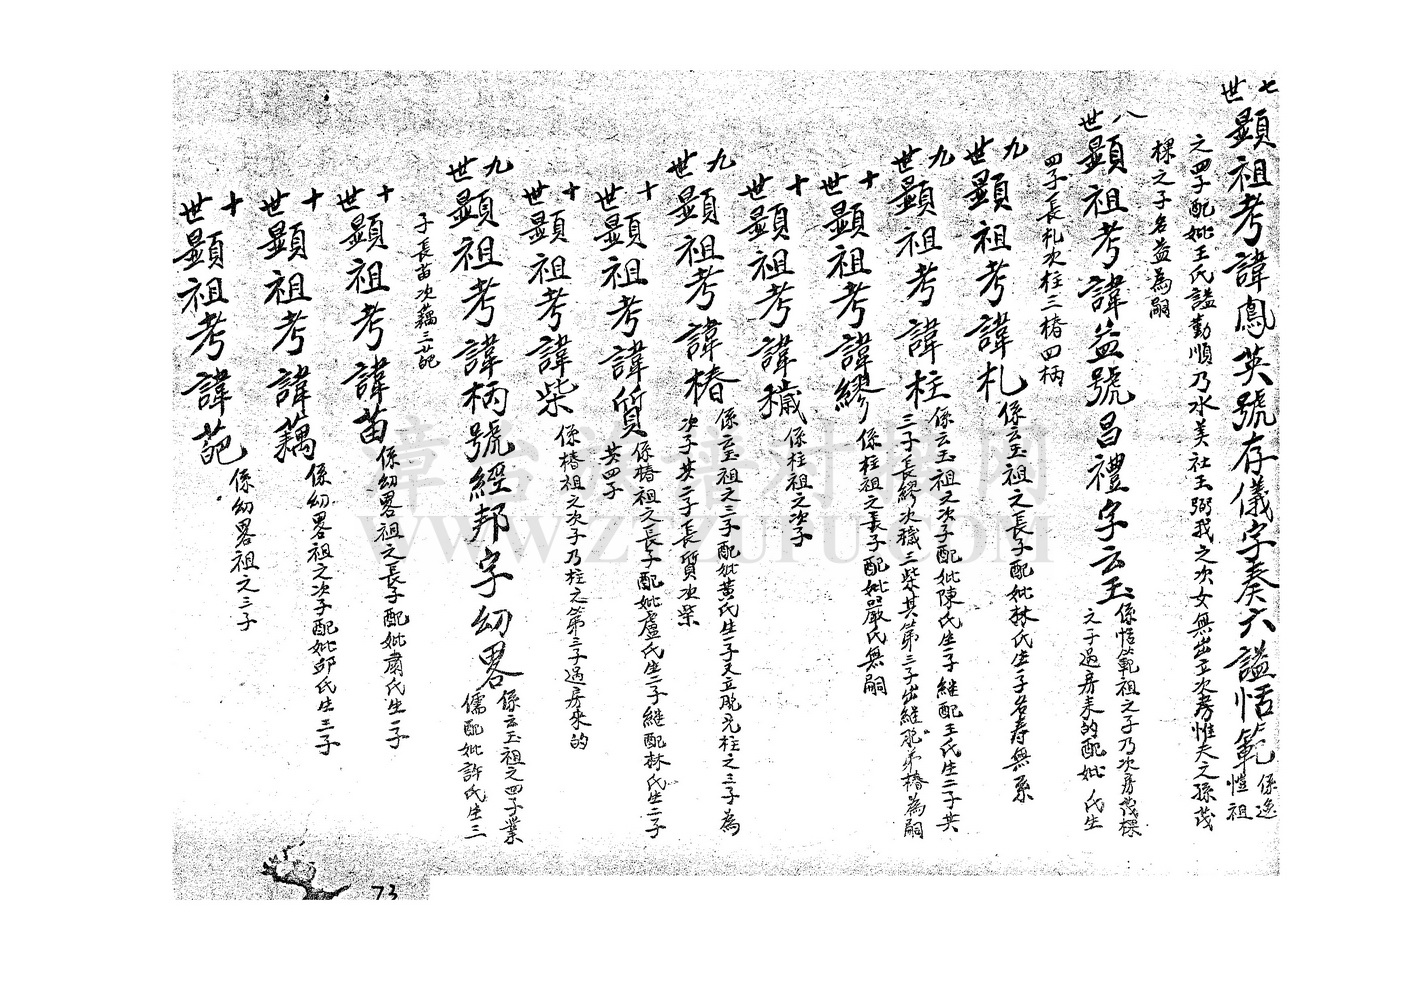 七世顯祖考諱鳳英號存儀字奏六謚恬範係逸愷祖
之四子配妣王氏謚勤順乃水美社王弼我之次女無出立次房惟夫之孫茂
棵之子名益為嗣
八世顯祖考諱益號昌禮字云玉係恬範祖之子乃次房茂棵之子過房來的配妣 氏生
四子長札次柱三椿四柄
九世顯祖考諱札係云玉祖之長子配妣林氏生子名寿無系
九世顯祖考諱柱係云玉祖之次子配妣陳氏生一子継配王氏生二子共三子長繆次穢三柴其第三子出継胞弟椿為嗣
十世顯祖考諱繆係柱祖之長子配妣嚴氏無嗣
十世顯祖考諱穢係柱祖之次子
九世顯祖考諱椿係云玉祖之三子配妣黄氏生一子又立胞兄柱之三子為次子共二子長質次柴
十世顯祖考諱質係椿祖之長子配妣盧氏生二子継配林氏生二子共四子
十世顯祖考諱柴係椿祖之次子乃柱之第三子過房來的
九世顯祖考諱柄號經邦字幼畧係云玉祖之四子業儒配妣許氏生三
子長苗次藕三葩
十世顯祖考諱苗係幼畧祖之長子配妣肅氏生一子
十世顯祖考諱藕係幼畧祖之次子配妣邱氏生三子
十世顯祖考諱葩係幼畧祖之三子
73
章台族谱对接网
WWW.ZTZUPU.COM